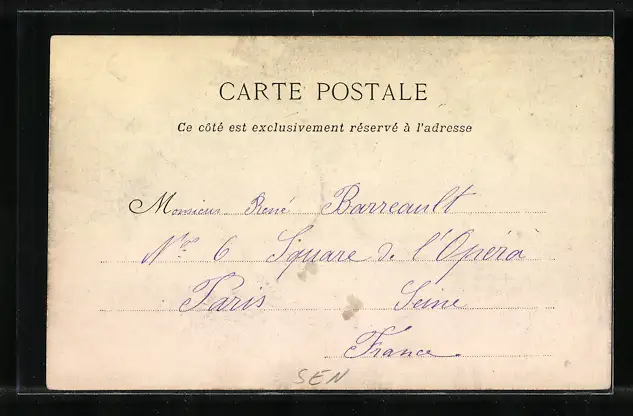 CARTE POSTALE
Ce côté est exclusivement réservé à l'adresse
Monsieur René Barreault
No. 6 Square de l'Opéra
Paris Seine
France
SEN